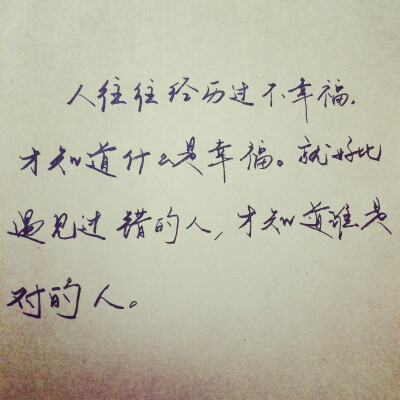 人往往经历过不幸福，
才知道什么是幸福。就好比
遇见过错的人，才知道谁是
对的人。